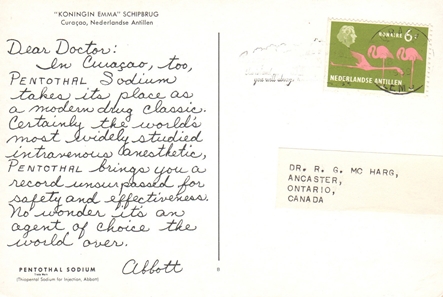 "KONINGIN EMMA" SCHIPBRUG
Curaçao, Nederlandse Antillen
Dear Doctor:
In Curaçao, too,
PENTOTHAL Sodium
takes its place as
a modern drug classic.
Certainly the world's
most widely studied
intravenous anesthetic,
PENTOTHAL brings you a
record unsurpassed for
safety and effectiveness.
No wonder it's an
agent of choice the
world over.
Abbott
PENTOTHAL SODIUM
(Thiopental Sodium for Injection, Abbott)
8
BONAIRE 6 c
NEDERLANDSE ANTILLEN
DR. R. G. MC HARG,
ANCASTER,
ONTARIO,
CANADA